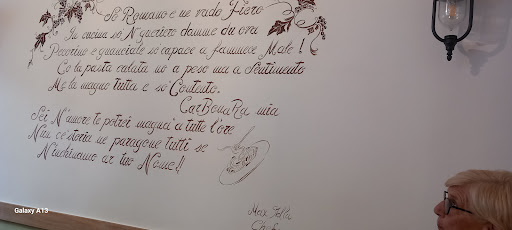 So Romano e ne vado Fiero
In cucina so N'gueriero damme du ova
Pecorino e guanciale so capace a fammece Male!
Co la pasta calata no a peso ma a Sentimento
Me la magno tutta e so Contento.
CarBonaRa mia
Sei N'amore te potrei magna' a tutte l'ore
Nun ce storia ne paragone tutti se
N'inchinano ar tuo Nome!!
Max
Chef
Galaxy A13